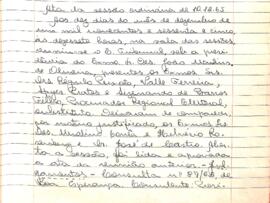 Ata da sessão ordinária de 10.12.65
Aos dez dias do mês de dezembro de
um mil novecentos e sessenta e cinco,
às dezessete horas, na sala das sessões,
reuniu-se o E. Tribunal, sob a presi-
dência do Exmo Sr. Des. João Martins
de Oliveira, presentes os Exmos Srs.
Drs. Régulo Peixoto, Valle Ferreira,
Ayres Dutos e Sizenando de Barros
Filho, Procurador Regional Eleitoral,
substituto. Deixaram de comparecer,
por motivo justificado, os Exmos Srs.
Des. e
e Dr. José de Castro
a sessão, foi lida e aprovada
a ata da reunião anterior. - Jul-
gamentos - Consulta nº 87/65, de
Boa Esperança. Consulente: